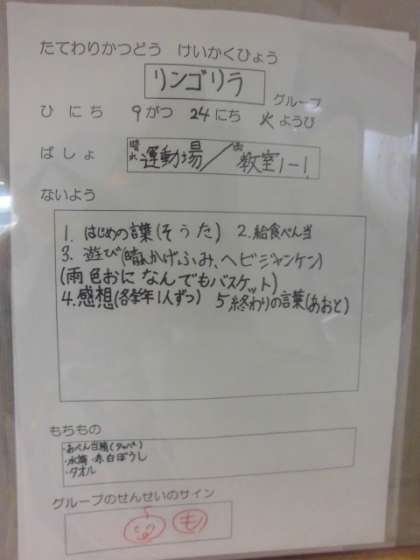 たてわりかつどう けいかくひょう
リンゴリラ グループ
ひ にち 9がつ 24にち 火ようび
ばしょ 晴れ 運動場/雨 教室1-1
ないよう
1. はじめの言葉(そうた) 2. 給食べん当
3. 遊び(晴かげふみ、ヘビジャンケン)
(雨 色おに なんでもバスケット)
4.感想(各学年1人ずつ) 5終わりの言葉(あおと)
もちもの
・水筒・赤白ぼうし
・タオル
グループのせんせいのサイン
も